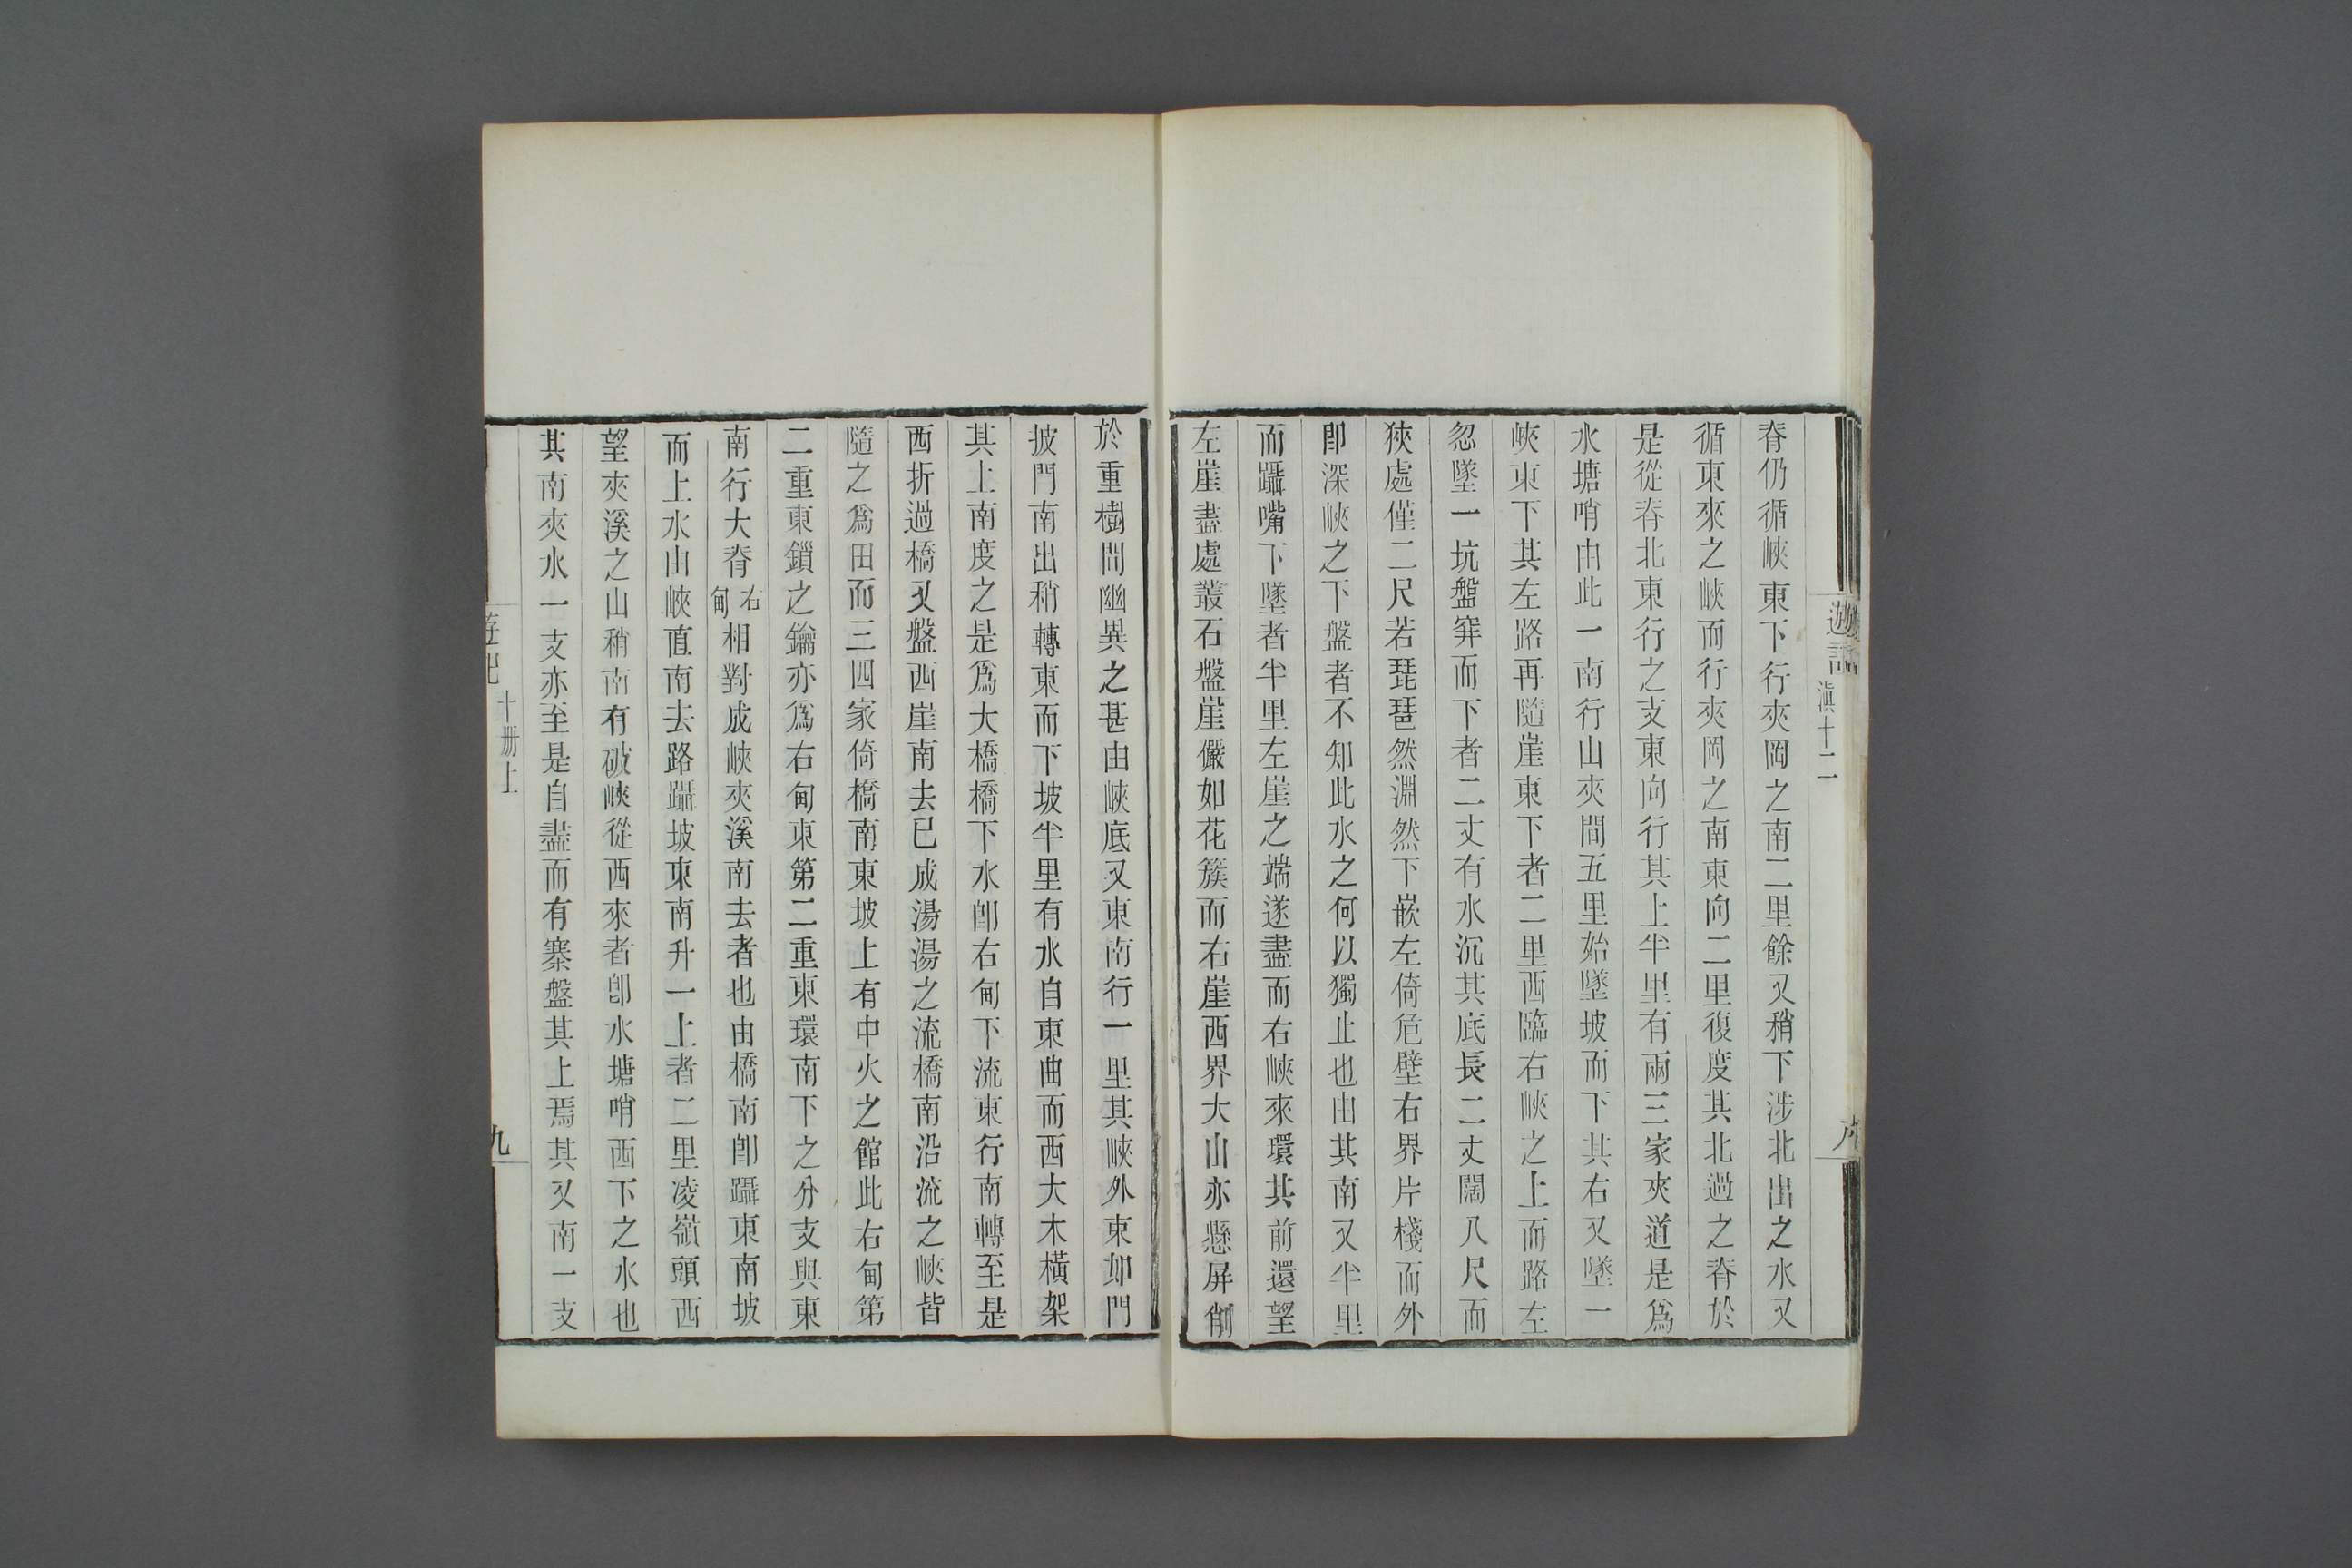 遊記
滇十二
脊仍循峽東下行夾岡之南二里餘又稍下涉北出之水又
循東來之峽而行夾岡之南東向二里復度其北過之脊於
是從脊北東行之支東向行其上半里有兩三家夾道是爲
水塘哨由此一南行山夾間五里始墜坡而下其右又墜一
峽東下其左路再隨崖東下者二里西臨右峽之上而路左
忽墜一坑盤穽而下者二丈有水沉其底長二丈闊八尺而
狹處僅二尺若琵琶然淵然下嵌左倚危壁右界片棧而外
卽深峽之下盤者不知此水之何以獨止也由其南又半里
而躡嘴下墜者半里左崖之端遂盡而右峽來環其前還望
左崖盡處叢石盤崖儼如花簇而右崖西界大山亦懸屏削
於重樹間幽異之甚由峽底又東南行一里其峽外束如門
披門南出稍轉東而下坡半里有水自東曲而西大木橫架
其上南度之是爲大橋橋下水卽右甸下流東行南轉至是
西折過橋又盤西崖南去已成湯湯之流橋南沿流之峽皆
隨之爲田而三四家倚橋南東坡上有中火之館此右甸第
二重東鎖之鑰亦爲右甸東第二重東環南下之分支與東
南行大脊右甸相對成峽夾溪南去者也由橋南卽躡東南坡
而上水由峽直南去路躡坡東南升一上者二里凌嶺頭西
望夾溪之山稍南有破峽從西來者卽水塘哨西下之水也
其南夾水一支亦至是自盡而有寨盤其上焉其又南一支
遊記
十册上
九